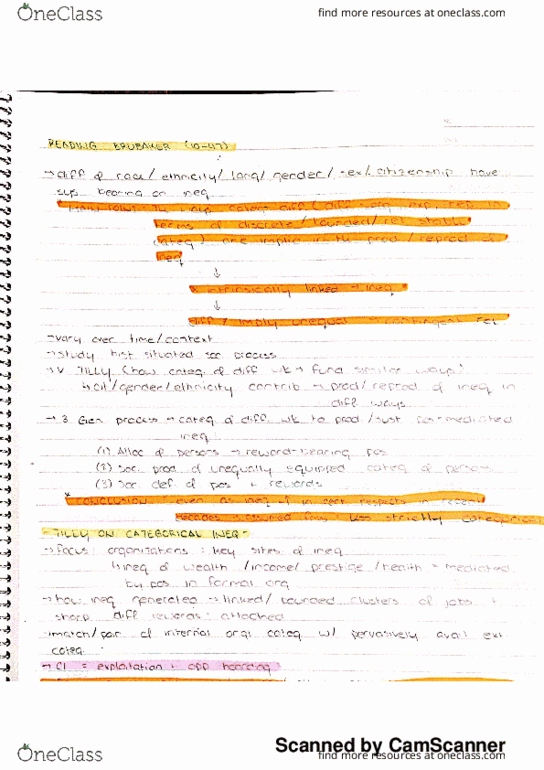 OneClass
find more resources at oneclass.com
READING BRUBAKER (10-47)
→ diff of race/ ethnicity/ lang/ gender/ sex/ citizenship have
sub bearing on ineq
terms of discrete / bounded / rel stable
categ) are implic in the prod / reprod of
ineq
↓
intrinsically linked → ineq
↓
diff ≠ imply unequal → contingent rel
→ vary over time/context
→ study hist situated soc process
→ V TILLY (how categ of diff wk → fund similar ways)
↳ cit/gender/ethnicity contrib → prod/reprod of ineq in
diff ways
→ 3 Gen process → categ of diff wk to prod /sust pos-mediated
ineq:
(1) Alloc of persons → reward-bearing pos
(2) Soc. prod of unequally equipped categ of persons
(3) Soc def of pos + rewards
* CONCLUSION even as ineq of in cert respects in recent
decades assumed less strictly categ
- TILLY ON CATEGORICAL INEQ -
→ focus: organizations: key sites of ineq
↳ ineq of wealth /income/ prestige /health = mediated
by pos in formal org
→ how ineq generated → linked/ bounded clusters of jobs +
sharp diff rewards: attached
→ match/pair of internal org categ w/ pervasively avail ext
categ
→ CI = exploitation + opp hoarding
Scanned by CamScanner
OneClass
find more resources at oneclass.com